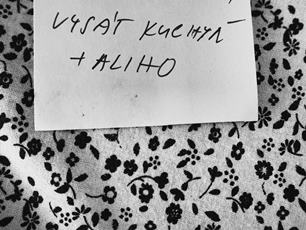 VYSÁT KUCHYŇ
+ ALIHO